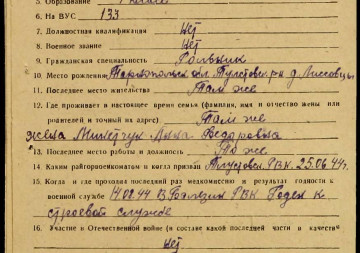 5. Образование
6. На ВУС 133
7. Должностная квалификация Нет
8. Военное звание Нет
9. Гражданская специальность Рольник
10 Место рождения Тарнопольск. обл. Тлустовск. р-н д. Лисовцы
11. Последнее место жительства Там же
12. Где проживает в настоящее время семья (фамилия, имя и отчество жены или
родителей и точный адрес) Там же
жена Анна Федоровна
13. Последнее место работы и должность То же
14 Каким райгорвоенкоматом и когда призван Тлустовск. РВК 25.06.44 г.
15. Когда и где проходил последний раз медкомиссию и результат годности к
военной службе 14.02.44 В РВК Годен к
строевой службе
16. Участие в Отечественной войне (в составе какой последней части и качестве
Нет